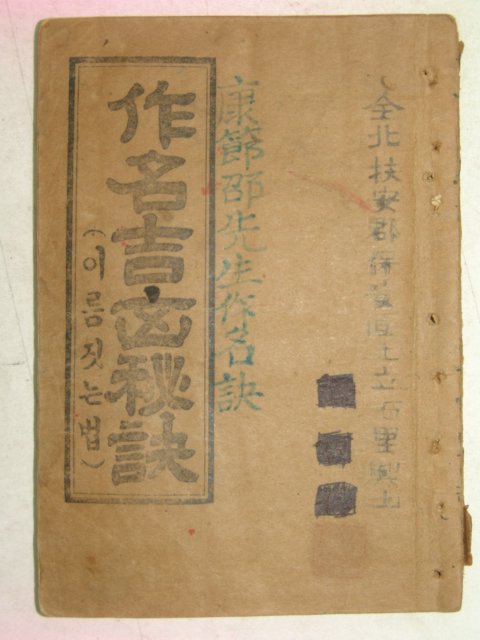 全北扶安郡保安面上立石里
康節邵先生作名訣
作名吉凶秘訣
(이름짓는법)